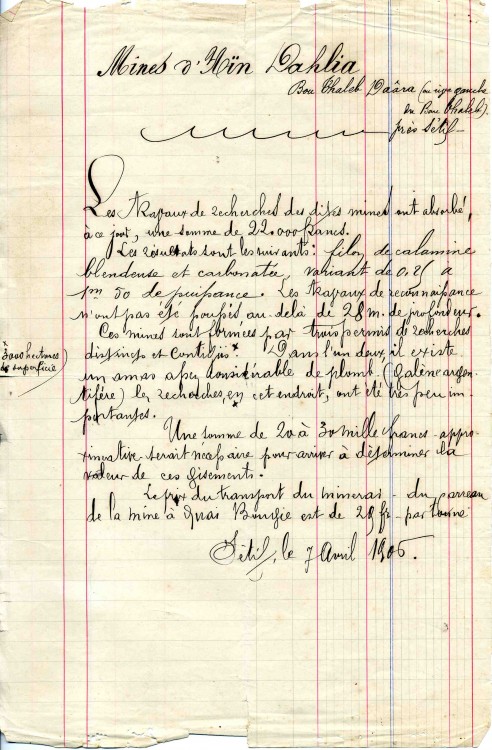 Mines d'Aïn Dahlia
Bou Thaleb Daâra (ou rive gauche
du Bou Thaleb).
près Sétif
Les travaux de recherches des dites mines ont absorbé,
à ce jour, une somme de 22.000 francs.
Les résultats sont les suivants : filon de calamine
blendeuse et carbonatée, variant de 0,25 à
1m 50 de puissance. Les travaux de reconnaissance
n'ont pas été poussés au-delà de 28 m. de profondeur.
Ces mines sont formées par trois permis de recherches
x 3000 hectares
de superficie
distincts et contigus x. Dans l'un deux, il existe
un amas assez considérable de plomb (Galène argen-
tifère) les recherches, en cet endroit, ont été très peu im-
portantes.
Une somme de 20 à 30 mille francs appro-
ximative serait nécessaire pour arriver à déterminer la
valeur de ces gisements.
Le prix du transport du minerai - du carreau
de la mine à quai Bougie est de 28 fr - par tonne
Sétif, le 7 Avril 1906.